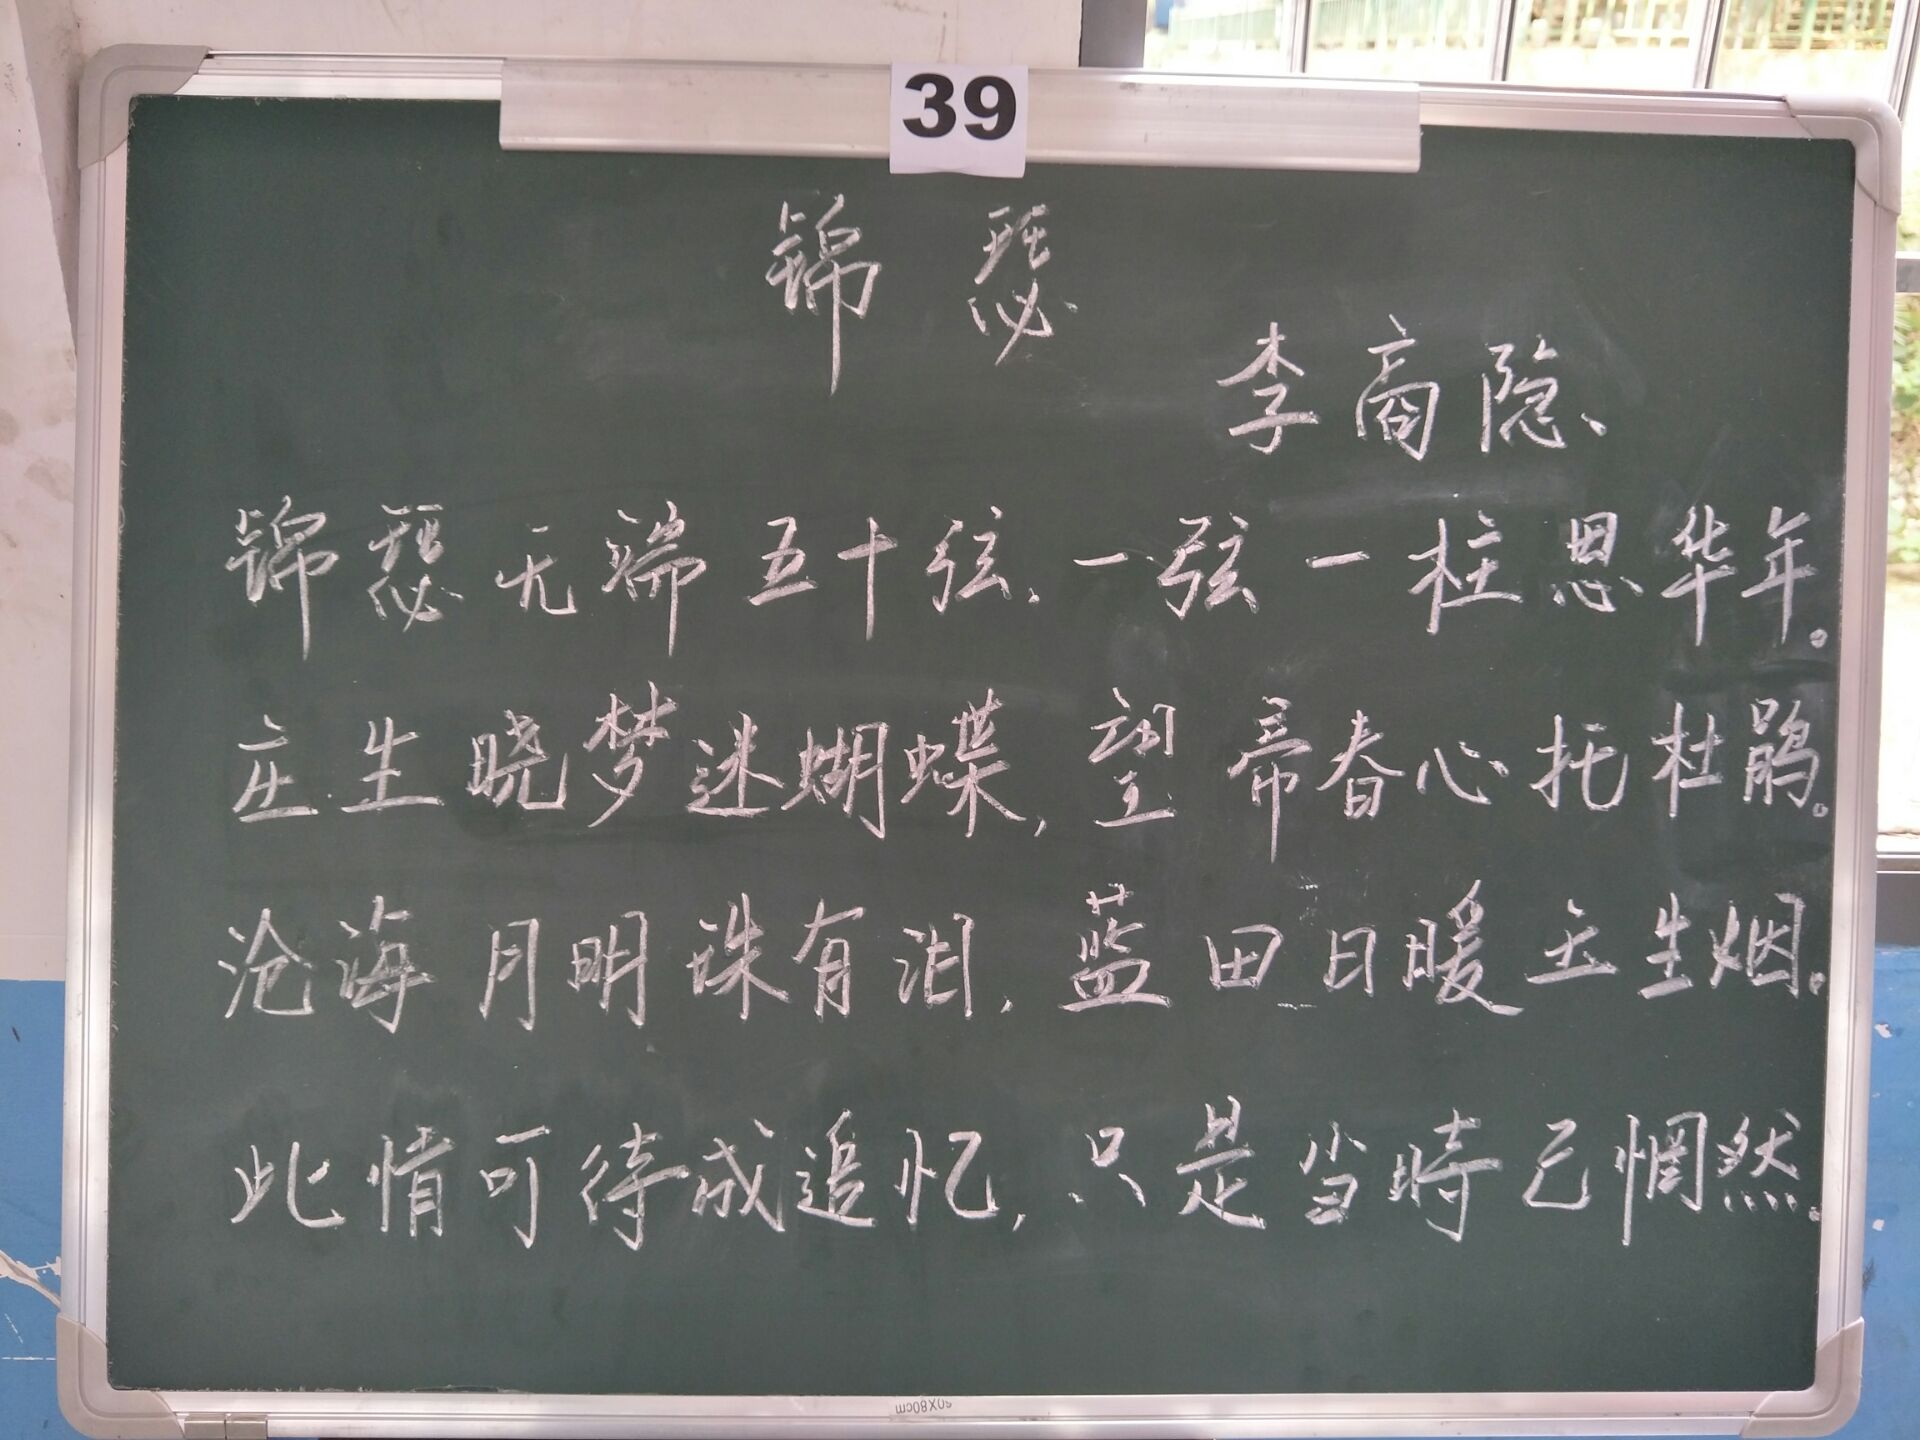 39
锦瑟
李商隐
锦瑟无端五十弦.一弦一柱思华年。
庄生晓梦迷蝴蝶,望帝春心托杜鹃。
沧海月明珠有泪,蓝田日暖玉生烟。
此情可待成追忆,只是当時已惘然.
60X80cm